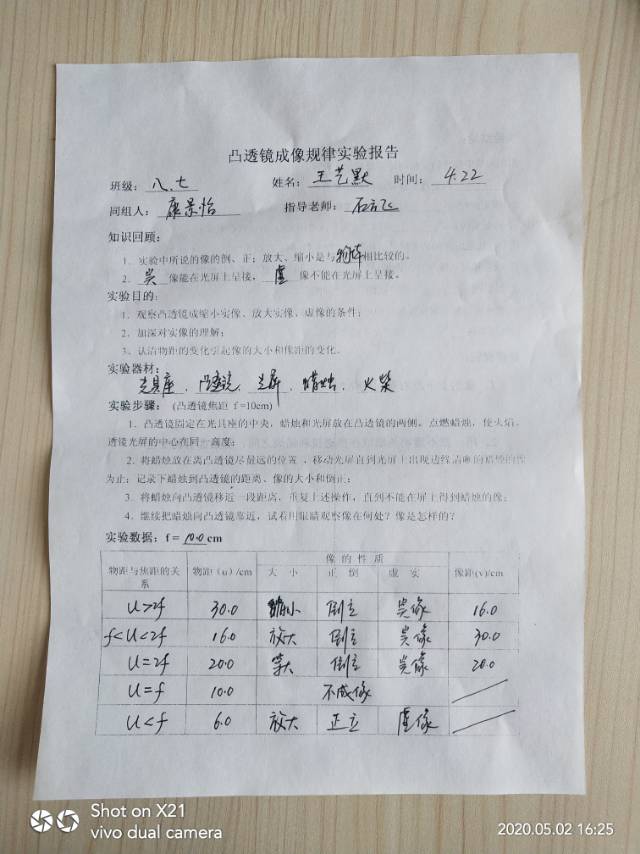 凸透镜成像规律实验报告
班级： 八.七 姓名： 王艺默 时间： 4.22
同组人： 康景怡 指导老师： 石方飞
知识回顾：
1．实验中所说的像的倒、正；放大、缩小是与物体相比较的。
2． 实 像能在光屏上呈接， 虚 像不能在光屏上呈接。
实验目的：
1．观察凸透镜成缩小实像、放大实像、虚像的条件；
2．加深对实像的理解；
3．认清物距的变化引起像的大小和像距的变化。
实验器材：
光具座、凸透镜、光屏、蜡烛、火柴
实验步骤：（凸透镜焦距 f=10cm）
1．凸透镜固定在光具座的中央，蜡烛和光屏放在凸透镜的两侧。点燃蜡烛，使火焰、
透镜光屏的中心在同一高度；
2．将蜡烛放在离凸透镜尽量远的位置，移动光屏直到光屏上出现边缘清晰的蜡烛的像
为止；记录下蜡烛到凸透镜的距离、像的大小和倒正；
3．将蜡烛向凸透镜移近一段距离，重复上述操作，直到不能在屏上得到蜡烛的像；
4．继续把蜡烛向凸透镜靠近，试着用眼睛观察像在何处？像是怎样的？
实验数据：f= 10.0 cm
物距与焦距的关系 物距（u）/cm 像 的 性 质 像距(v)/cm
大 小 正 倒 虚 实
U>2f 30.0 缩小 倒立 实像 16.0
f<U<2f 16.0 放大 倒立 实像 30.0
U=2f 20.0 等大 倒立 实像 20.0
U=f 10.0 不成像
U<f 6.0 放大 正立 虚像
Shot on X21
vivo dual camera
2020.05.02 16:25